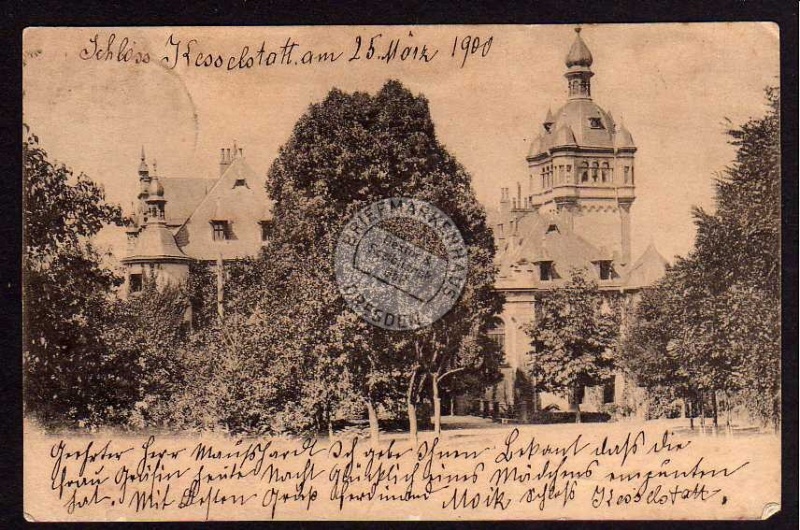 Schloss Kesselstatt, am 25. März 1900
BRIEFMARKENHAUS
DRESDEN
Geehrter Herr Ich gebe Ihnen Bekant daß die
Frau Gräfin heute Nacht Glücklich eines Mädchens
hat. Mit Besten Gruß Ferdinand Moik Schloß Kesselstatt.